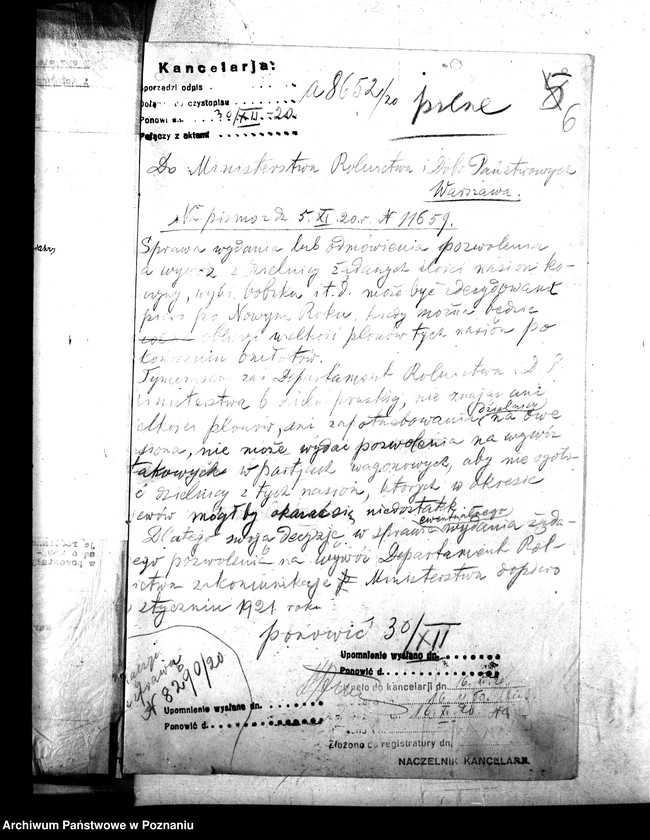 Kancelarja:
Sporządzi odpis
czystopisu
Ponowi dn. 30/XII - 20.
Połączy z aktami
A 8652/20
pilne
6
Do Ministerstwa Rolnictwa i Dóbr Państwowych
Warszawa.
Na pismo z d. 5. XI. 20. r. № 11659.
Sprawa wydania lub odmówienia pozwolenia
a wywóz z Dzielnicy żądanych ilości nasion ko-
bobiku i t. d. może być zdecydowana
piero po Nowym Roku, kiedy można będzie
wielkość plonów tych nasion po
kończeniu omłotów.
Tymczasem zaś Departament Rolnictwa i D. P.
Ministerstwa b. dzieln. pruskiej, nie znając ani
elkości plonów, ani zapotrzebowania Dzielnicy na owe
siona, nie może wydać pozwolenia na wywóz
takowych w partjach wagonowych, aby nie ogoło-
ć dzielnicy z tych nasion, których w okresie
iewów mógłby okazać się niedostatek.
Dlatego swoją decyzję w sprawie ewentualnego wydania żąda-
ego pozwolenia na wywóz Departament Rol-
ictwa zakomunikuje Ministerstwu dopiero
styczniu 1921 roku.
ponowić 30/XII
№ 8290/20
Upomnienie wysłano dn.
Ponowić d.
do kancelarji dn.
16. XI. 20
Upomnienie wysłano dn.
Ponowić d.
Złożono do registratury dn.
NACZELNIK KANCELARJI
Archiwum Państwowe w Poznaniu